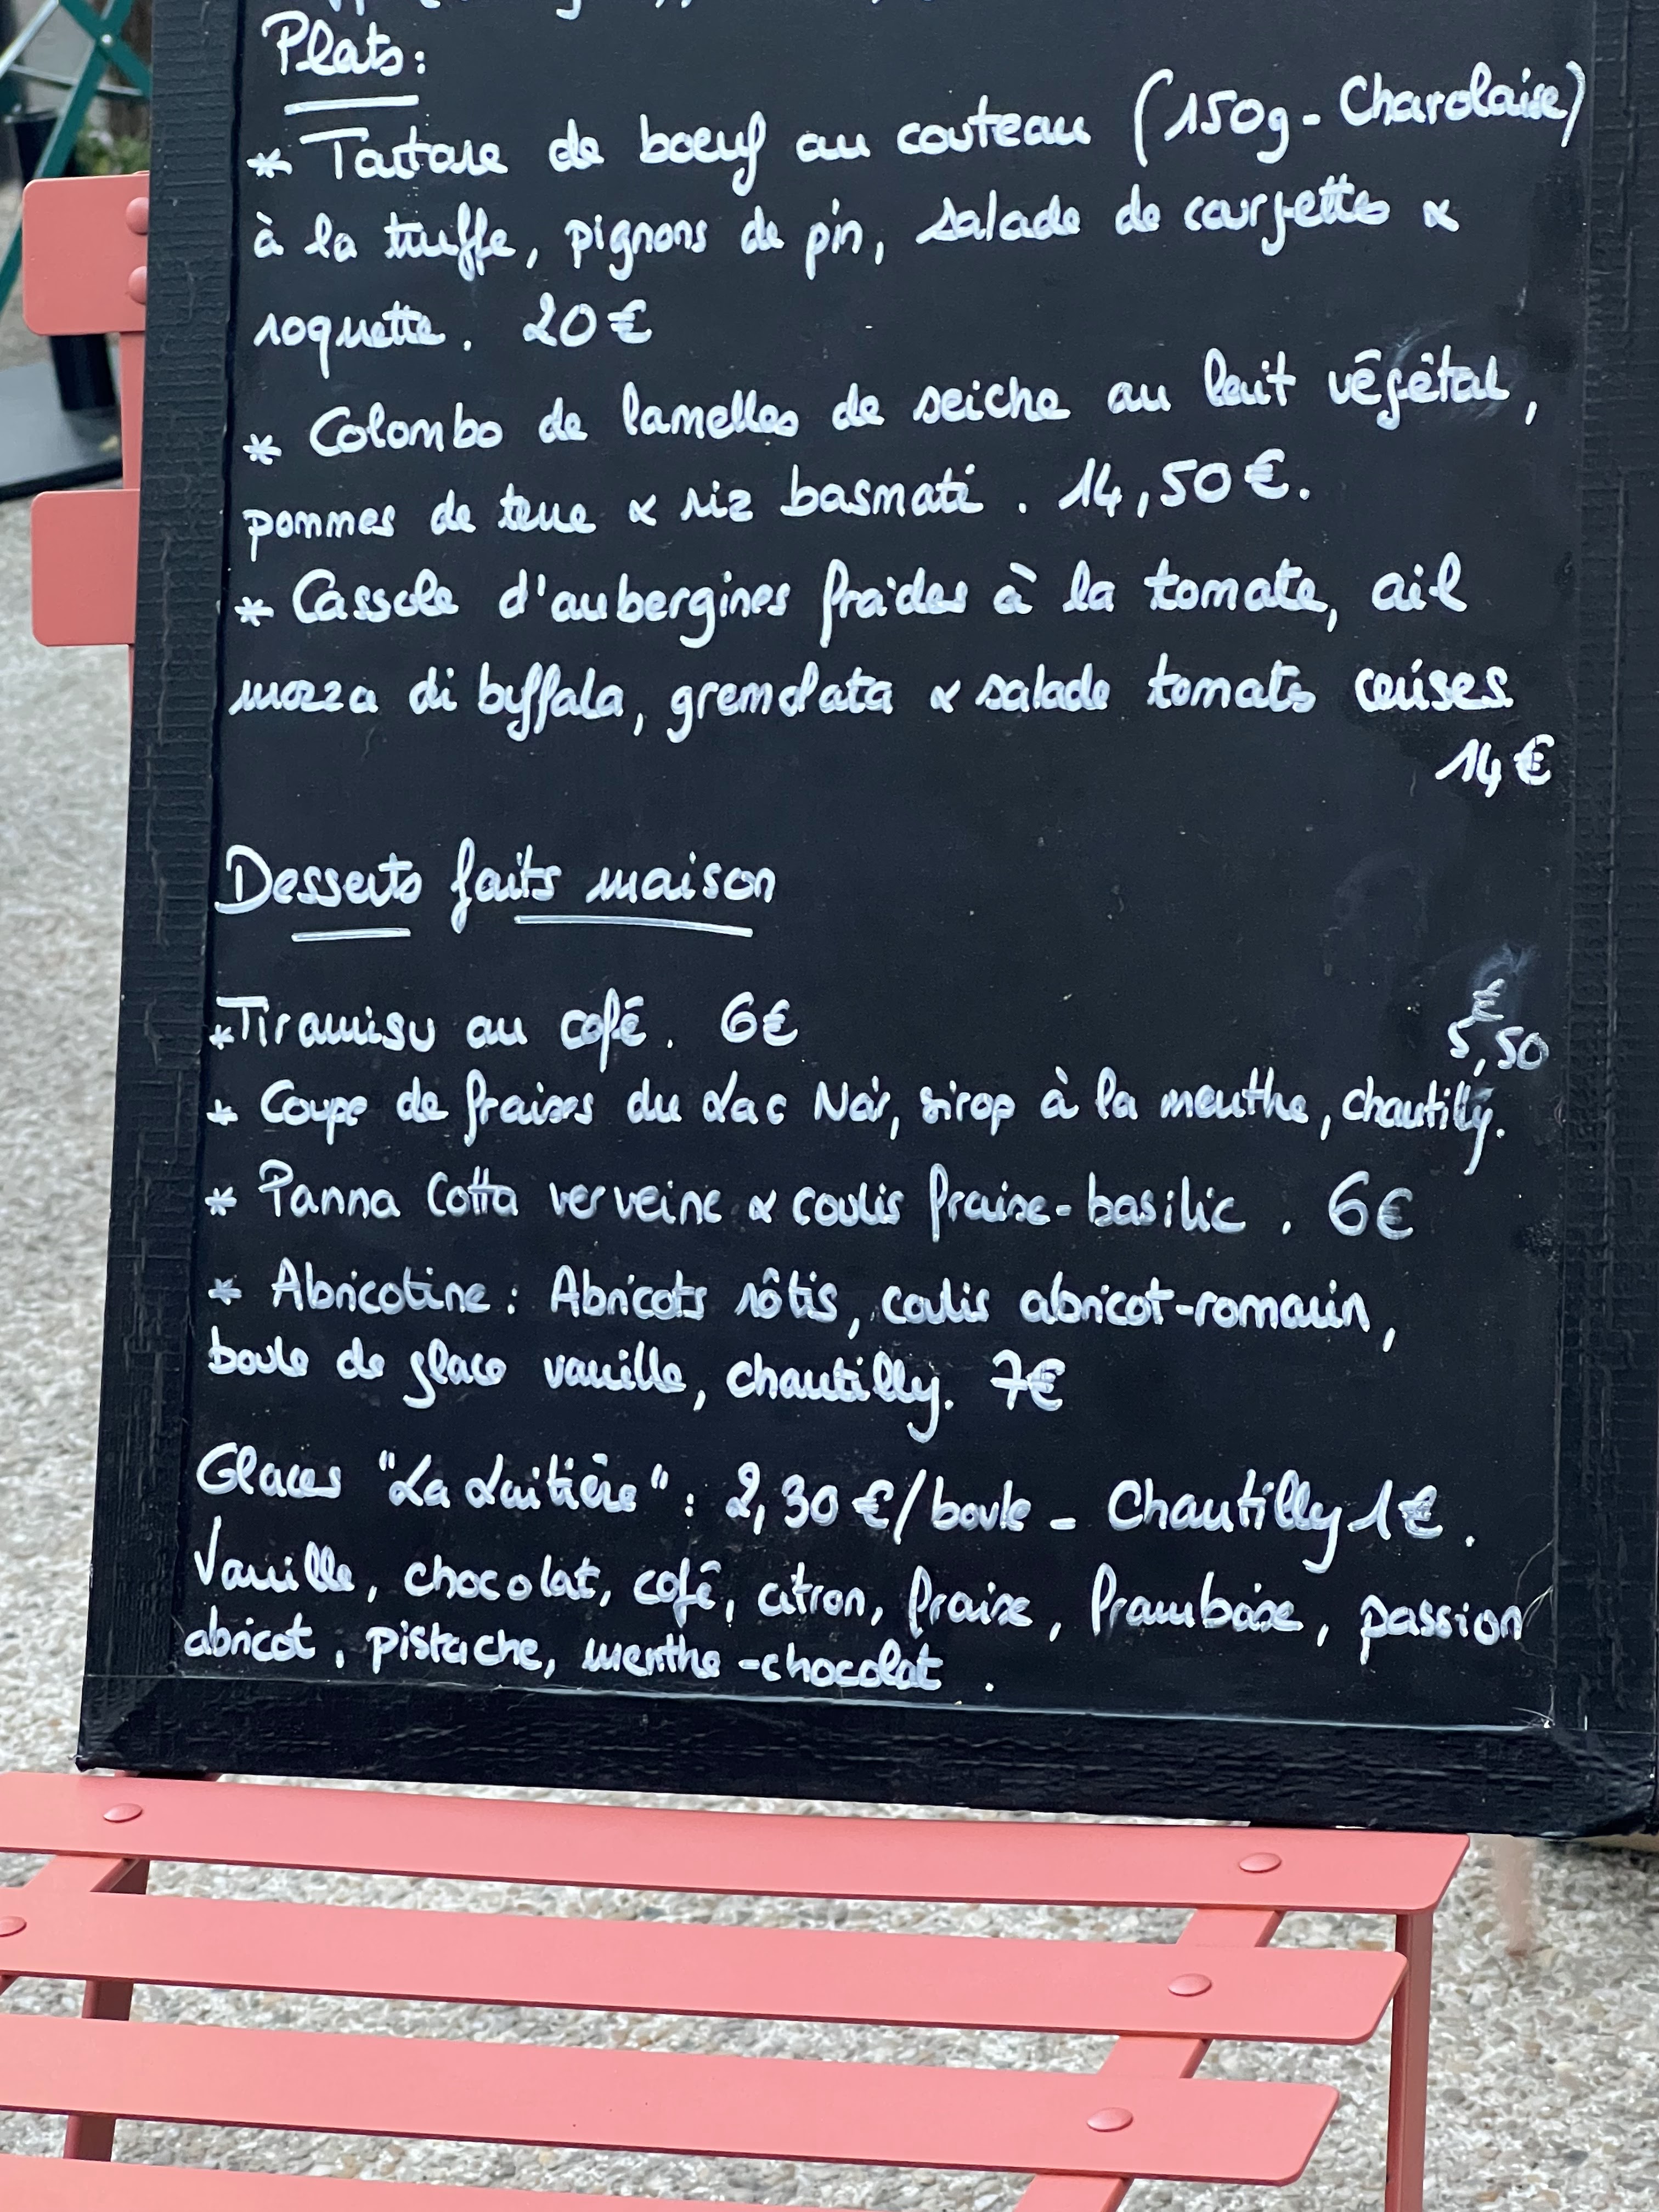 Plats:
* Tartare de boeuf au couteau (150g - Charolaise)
à la truffe, pignons de pin, salade de courgettes &
roquette. 20€
* Colombo de lamelles de seiche au lait végétal,
pommes de terre & riz basmati. 14,50€.
* Cassole d'aubergines froides à la tomate, ail
mozza di buffala, gremolata & salade tomates cerises.
14€
Desserts faits maison
* Tiramisu au café. 6€
€
5,50
* Coupe de fraises du Lac Noir, sirop à la menthe, chantilly.
* Panna Cotta verveine & coulis fraise-basilic. 6€
* Abricotine : Abricots rôtis, coulis abricot-romarin,
boule de glace vanille, chantilly. 7€
Glaces "La Laitière" : 2,30€/boule - Chantilly 1€.
Vanille, chocolat, café, citron, fraise, framboise, passion
abricot, pistache, menthe-chocolat.